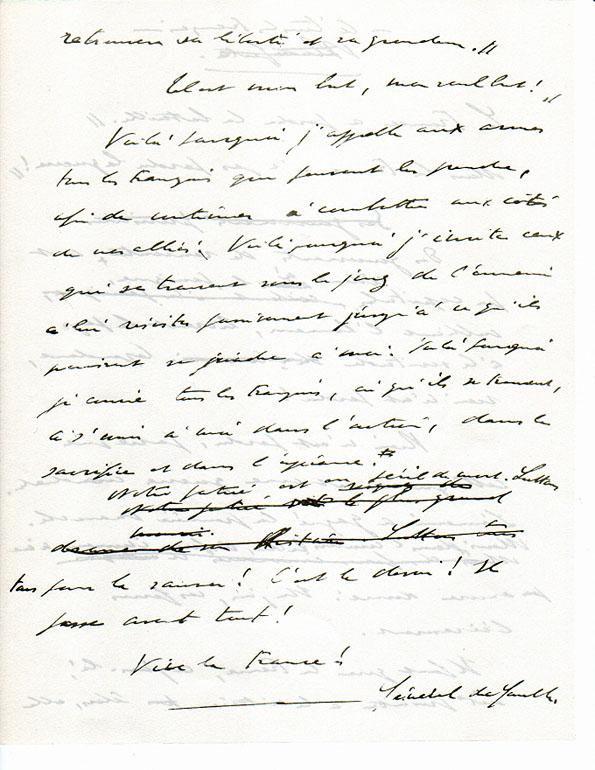 retrouvera sa liberté et sa grandeur.
Tel est mon but, mon seul but !
Voilà pourquoi j'appelle aux armes
tous les Français qui peuvent les prendre,
afin de continuer à combattre aux côtés
de nos alliés. Voilà pourquoi j'invite ceux
qui se trouvent sous le joug de l'ennemi
à lui résister passivement jusqu'à ce qu'ils
puissent se joindre à moi. Voilà pourquoi
je convie tous les Français, où qu'ils se trouvent,
à s'unir à moi dans l'action, dans le
sacrifice et dans l'espérance.
Notre patrie est en péril de mort. Luttons
Notre patrie le plus grand
de son histoire. Luttons tous
tous pour la sauver ! C'est le devoir ! Il
passe avant tout !
Vive la France !
Général de Gaulle.